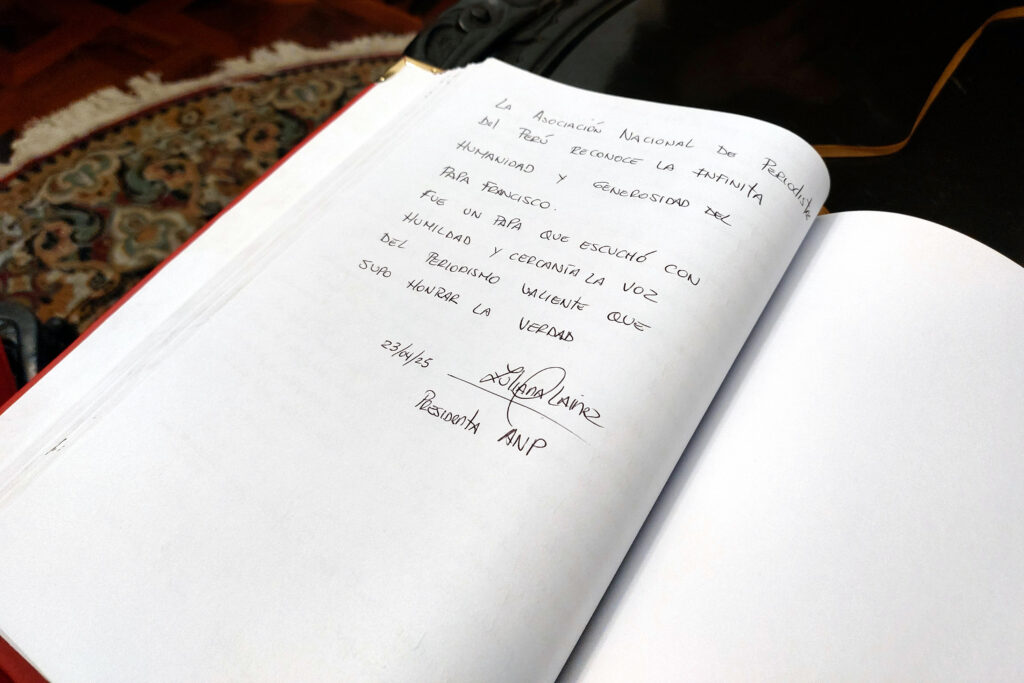 La Asociación Nacional de Periodistas
del Perú reconoce la infinita
humanidad y generosidad del
Papa Francisco.
Fue un Papa que escuchó con
humildad y cercanía la voz
del periodismo valiente que
supo honrar la verdad
23/04/25 Zuliana Lainez
Presidenta ANP